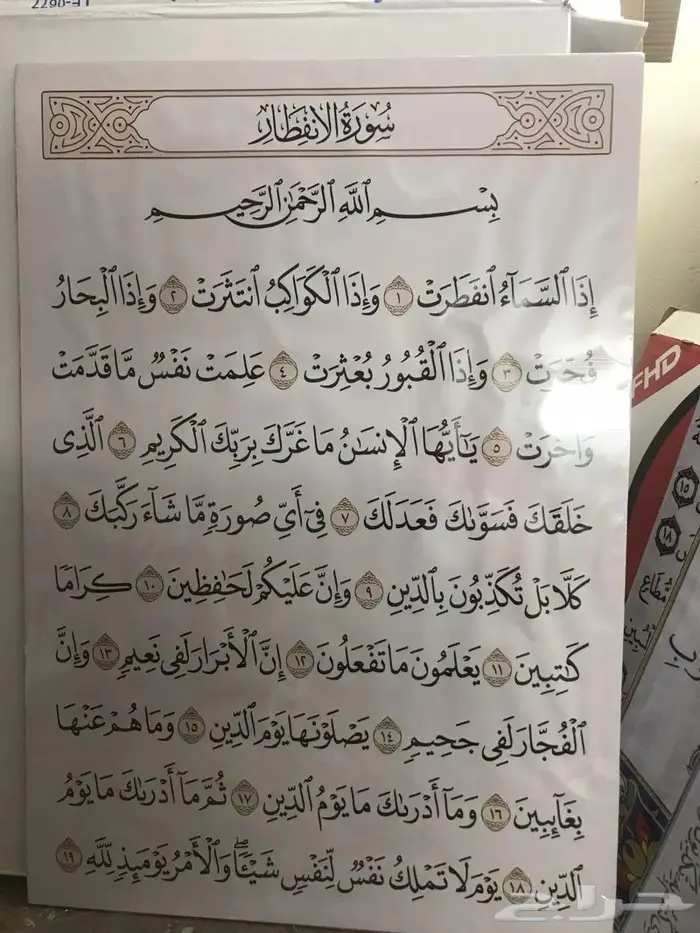 سُورَةُ الانفِطَارِ
بِسْمِ ٱللَّهِ ٱلرَّحْمَٰنِ ٱلرَّحِيمِ
إِذَا ٱلسَّمَآءُ ٱنفَطَرَتْ ١ وَإِذَا ٱلْكَوَاكِبُ ٱنتَثَرَتْ ٢ وَإِذَا ٱلْبِحَارُ
فُجِّرَتْ ٣ وَإِذَا ٱلْقُبُورُ بُعْثِرَتْ ٤ عَلِمَتْ نَفْسٌ مَّا قَدَّمَتْ
وَأَخَّرَتْ ٥ يَٰٓأَيُّهَا ٱلْإِنسَٰنُ مَا غَرَّكَ بِرَبِّكَ ٱلْكَرِيمِ ٦ ٱلَّذِى
خَلَقَكَ فَسَوَّىٰكَ فَعَدَلَكَ ٧ فِىٓ أَىِّ صُورَةٍ مَّا شَآءَ رَكَّبَكَ ٨
كَلَّا بَلْ تُكَذِّبُونَ بِٱلدِّينِ ٩ وَإِنَّ عَلَيْكُمْ لَحَٰفِظِينَ ١٠ كِرَامًا
كَٰتِبِينَ ١١ يَعْلَمُونَ مَا تَفْعَلُونَ ١٢ إِنَّ ٱلْأَبْرَارَ لَفِى نَعِيمٍ ١٣ وَإِنَّ
ٱلْفُجَّارَ لَفِى جَحِيمٍ ١٤ يَصْلَوْنَهَا يَوْمَ ٱلدِّينِ ١٥ وَمَا هُمْ عَنْهَا
بِغَآئِبِينَ ١٦ وَمَآ أَدْرَىٰكَ مَا يَوْمُ ٱلدِّينِ ١٧ ثُمَّ مَآ أَدْرَىٰكَ مَا يَوْمُ
ٱلدِّينِ ١٨ يَوْمَ لَا تَمْلِكُ نَفْسٌ لِّنَفْسٍ شَيْـًٔا ۖ وَٱلْأَمْرُ يَوْمَئِذٍ لِّلَّهِ ١٩
FHD
حراج